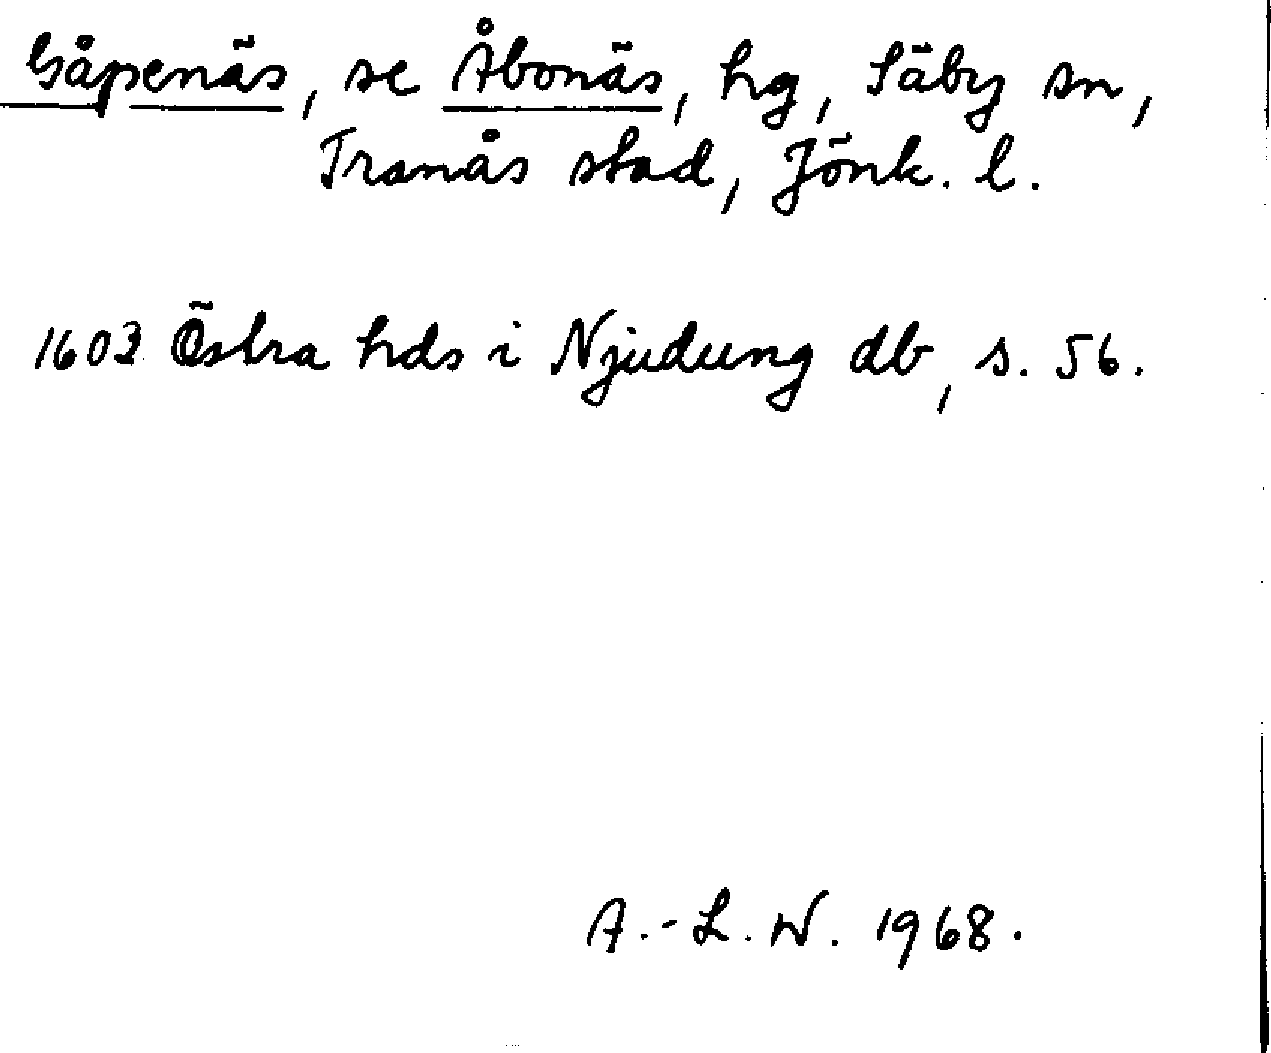 Gåpenäs, se Åbonäs, hg, Säby sn,
Tranås stad, Jönk. l.
1603 Östra hds i Njudung db, s. 56.
A.-L. W. 1968.